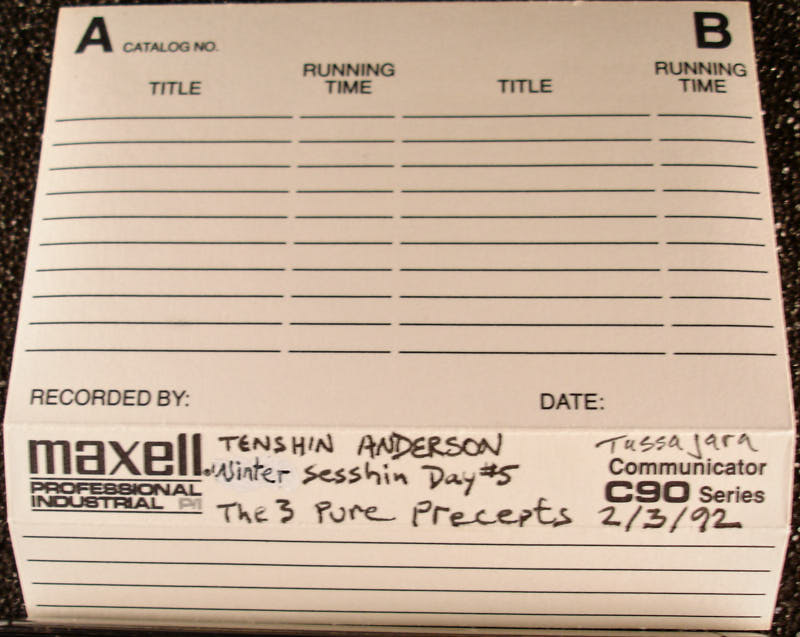 A CATALOG NO. B
TITLE RUNNING TIME TITLE RUNNING TIME
RECORDED BY: DATE:
maxell. TENSHIN ANDERSON Tussajara
Winter Sesshin Day #5 Communicator
PROFESSIONAL INDUSTRIAL P/I The 3 Pure Precepts C90 Series
2/3/92